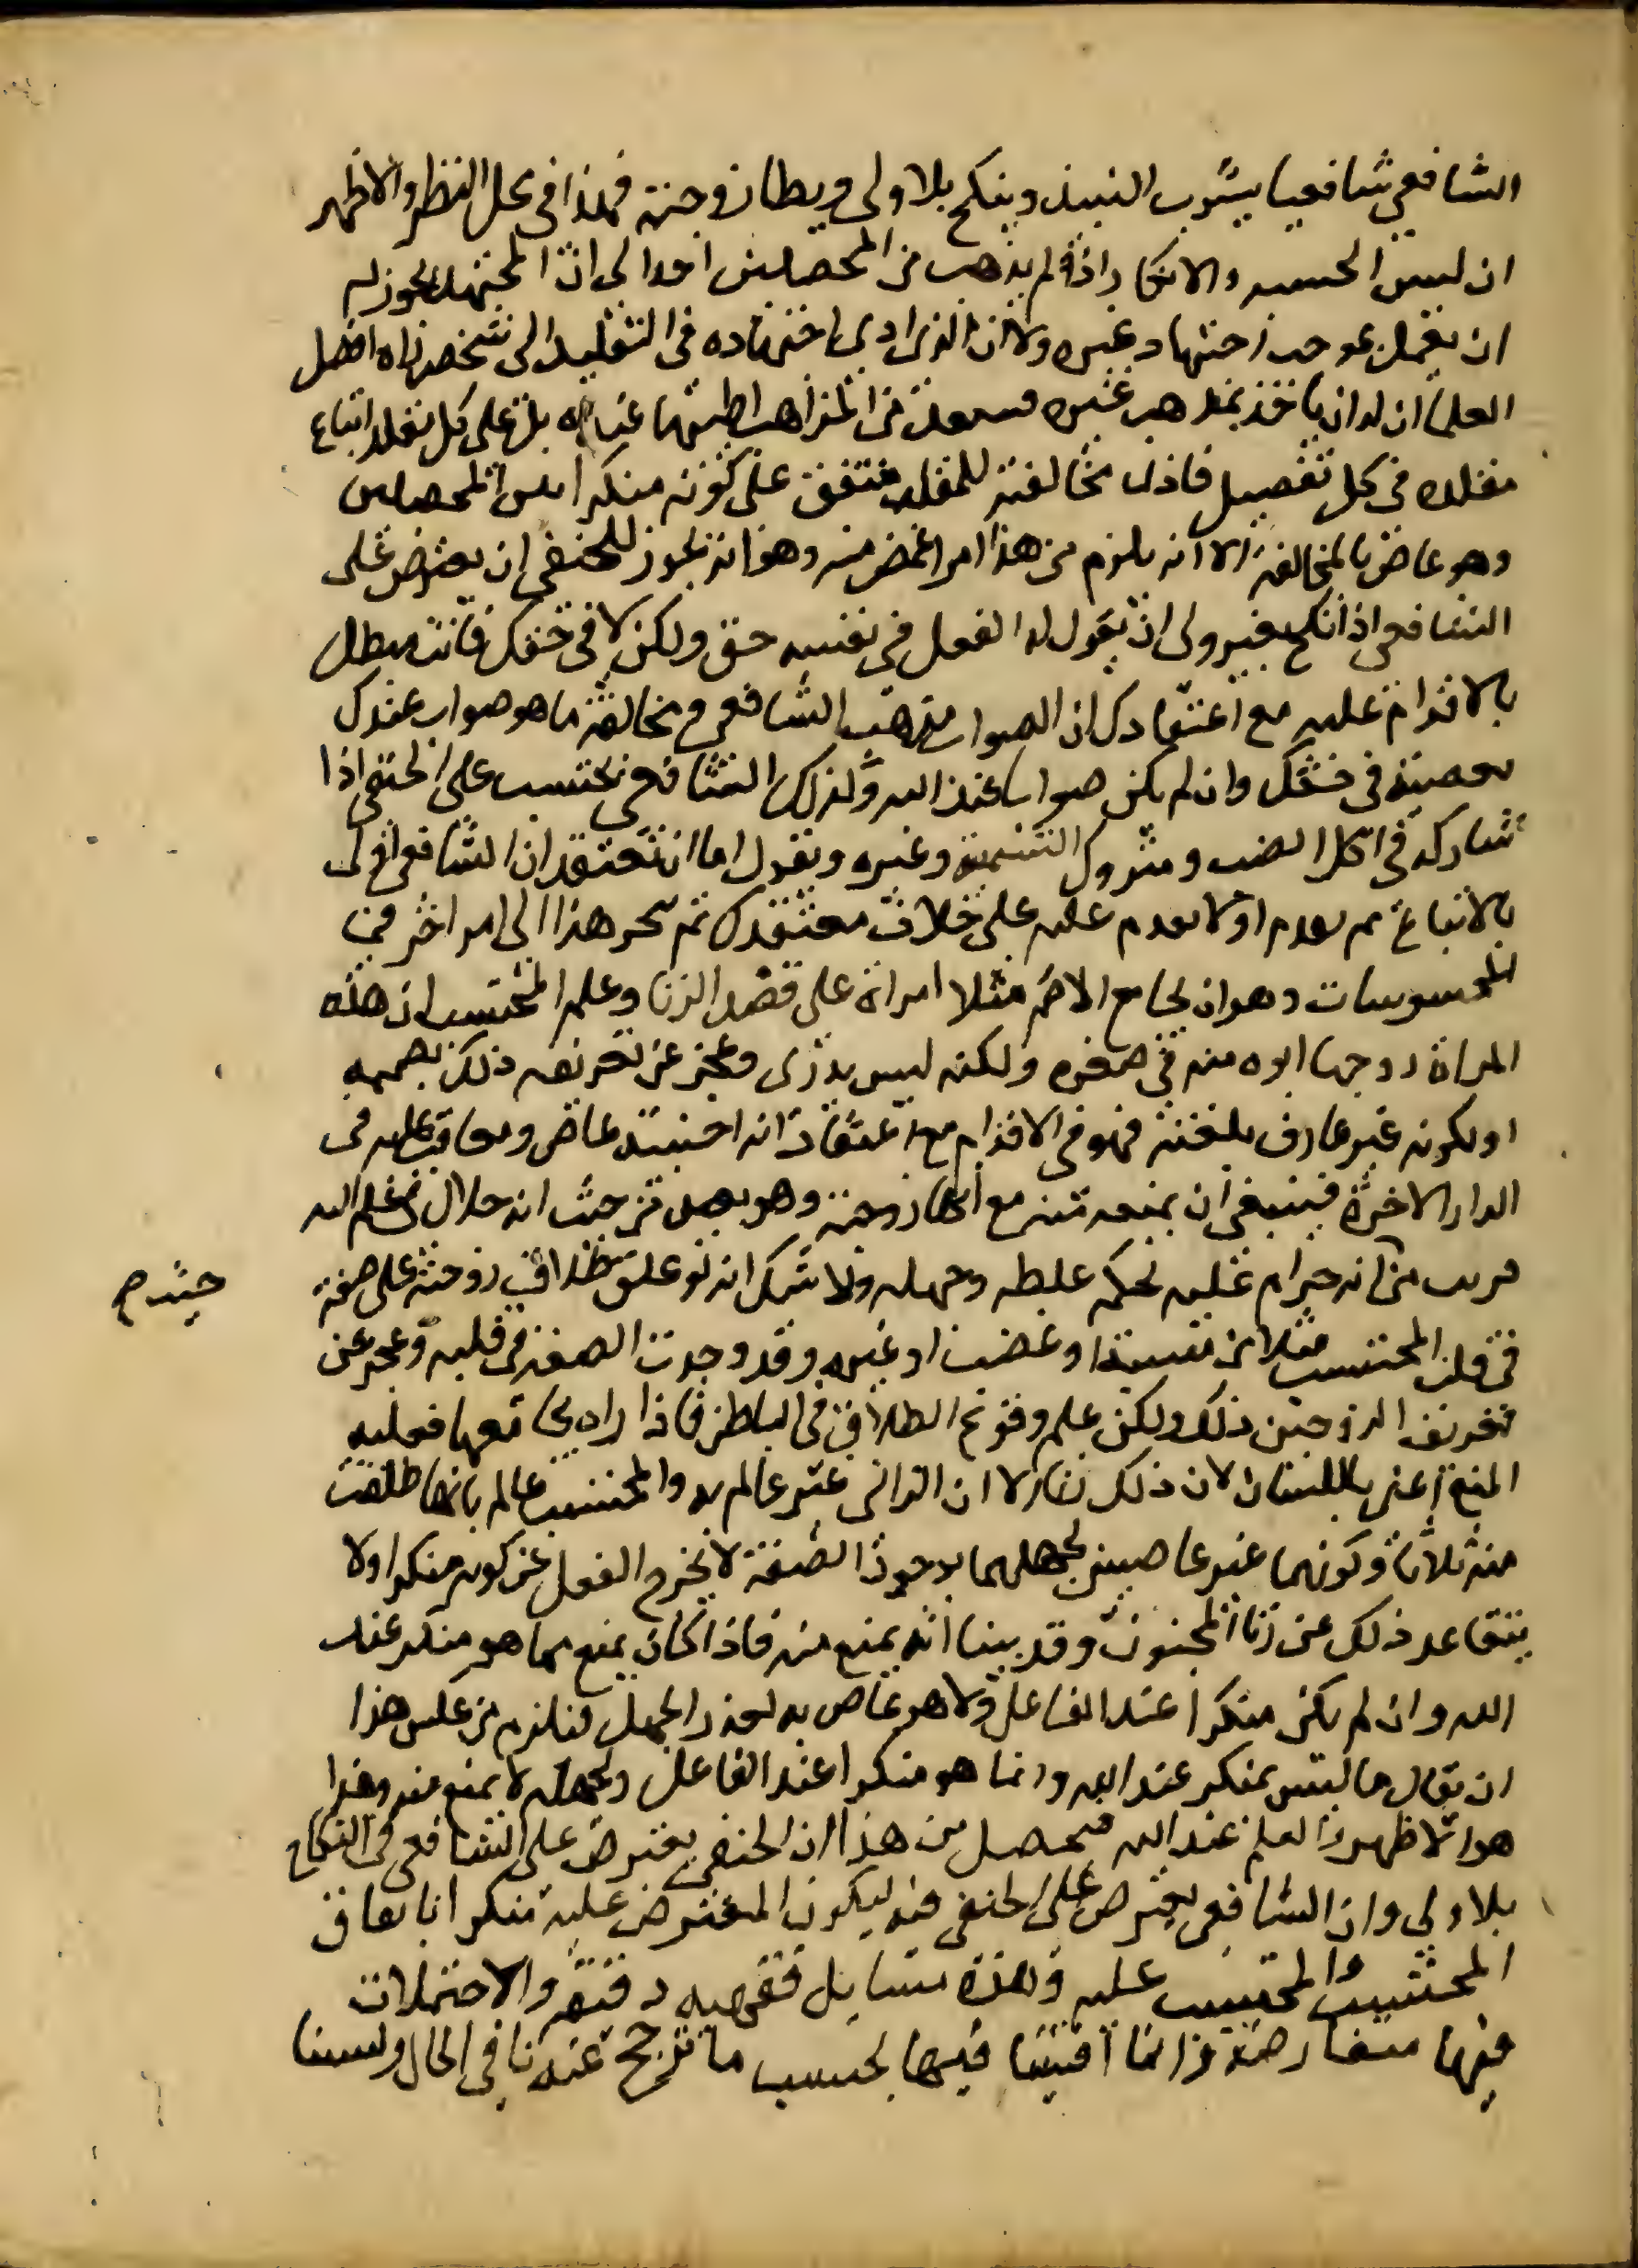 الشافعي شافعيا يشرب النبيذ وينكح بلا ولي ويطا زوجته فهذا في محل النظر والاظهر
ان ليس الحسبه والانكار اذ لم يذهب من المحصلين احد الى ان المجتهد يجوز له
ان يعمل بموجب اجتهاد غيره ولا ان الذي ادى اجتهاده في التقليد الى شخص راه افضل
العلما ان له ان ياخذ بمذهب غيره فينتقد من المذاهب اطيبها عنده بل على كل مقلد اتباع
مقلده في كل تفصيل فاذا مخالفته للمقلد متفق على كونه منكرا بين المحصلين
وهو عاض بالمخالفة الا انه يلزم من هذا امر اغمض منه وهو انه يجوز للحنفي ان يعترض على
الشافعي اذا نكح بغير ولي ان يقول له الفعل في نفسه حق ولكن لا في حقك فانت مبطل
بالاقدام عليه مع اعتقادك ان الصواب مذهب الشافعي ومخالفة ما هو صواب عندك
معصية في حقك وان لم يكن صوابا عند الله وكذلك الشافعي يحتسب على الحنفي اذا
شاركه في اكل الضب ومتروك التسمية وغيره ويقول اما ان تعتقد ان الشافعي اولى
بالاتباع ثم يقدم او لا يقدم عليه على خلاف معتقدك ثم ينجر هذا الى امر اخر من
المحسوسات وهو ان يجامع الاصم مثلا امراة على قصد الزنا وعلم المحتسب ان هذه
المراة زوجها ابوه منه في صغره ولكنه ليس يدري وعجز عن تعريفه ذلك لصممه
او لكونه غير عارف بلغته فهو في الاقدام مع اعتقاده انه اجنبية عاض ومعاقب عليه في
الدار الاخرة فينبغي ان يمنعه منه مع انها زوجته وهو بعيد من حيث انه حلال في علم الله
قريب من انه حرام عليه بحكم غلطه وجهله ولا شك انه لو علق طلاق زوجته على صفة
في قلب المحتسب مثلا من مشيئة او غضب او غيره وقد وجدت الصفة في قلبه وعجز عن
تعريف الزوجين ذلك ولكن علم وقوع الطلاق في الباطن فاذا راه يجامعها فعليه
المنع اعني باللسان لان ذلك زنا الا ان الزاني غير عالم به والمحتسب عالم بانها طلقت
منه ثلاثا وكونهما غير عاصيين لجهلهما بوجود الصفة لا يخرج الفعل عن كونه منكرا ولا
يتقاعد ذلك عن زنا المجنون وقد بينا انه يمنع منه فاذا كان يمنع مما هو منكر عند
الله وان لم يكن منكرا عند الفاعل ولا هو عاص به لعذر الجهل فيلزم من عكس هذا
ان يقال ما ليس بمنكر عند الله وانما هو منكرا عند الفاعل ولجهله لا يمنع منه وهذا
هو الاظهر والعلم عند الله فيحصل من هذا ان الحنفي يعترض على الشافعي في النكاح
بلا ولي وان الشافعي يعترض على الحنفي فيه ليكون المعترض عليه منكرا باتفاق
المحتسب والمحتسب عليه وهذه مسايل فقهيه دقيقه والاحتمالات
فيها متعارضة وانما افتينا فيها بحسب ما ترجح عندنا في الحال ولسنا